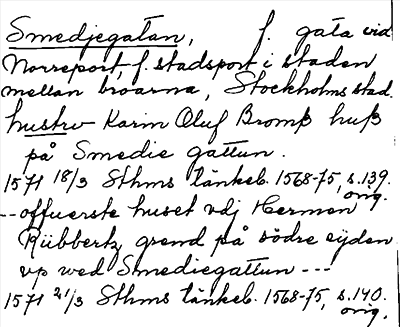 Smedjegatan, f. gata vid
Norreport, f. stadsport i staden
mellan broarna, Stockholms stad.
hustrv Karin Oluf Bromß huß
på Smedie gattun.
1571 18/3 Sthms tänkeb. 1568-75, s. 139.
orig.
-- offuerste huset vdj Hermen
Rübbertz grend på södre sijden
vp wed Smediegattun ---
1571 21/3 Sthms tänkeb. 1568-75, s. 140.
orig.